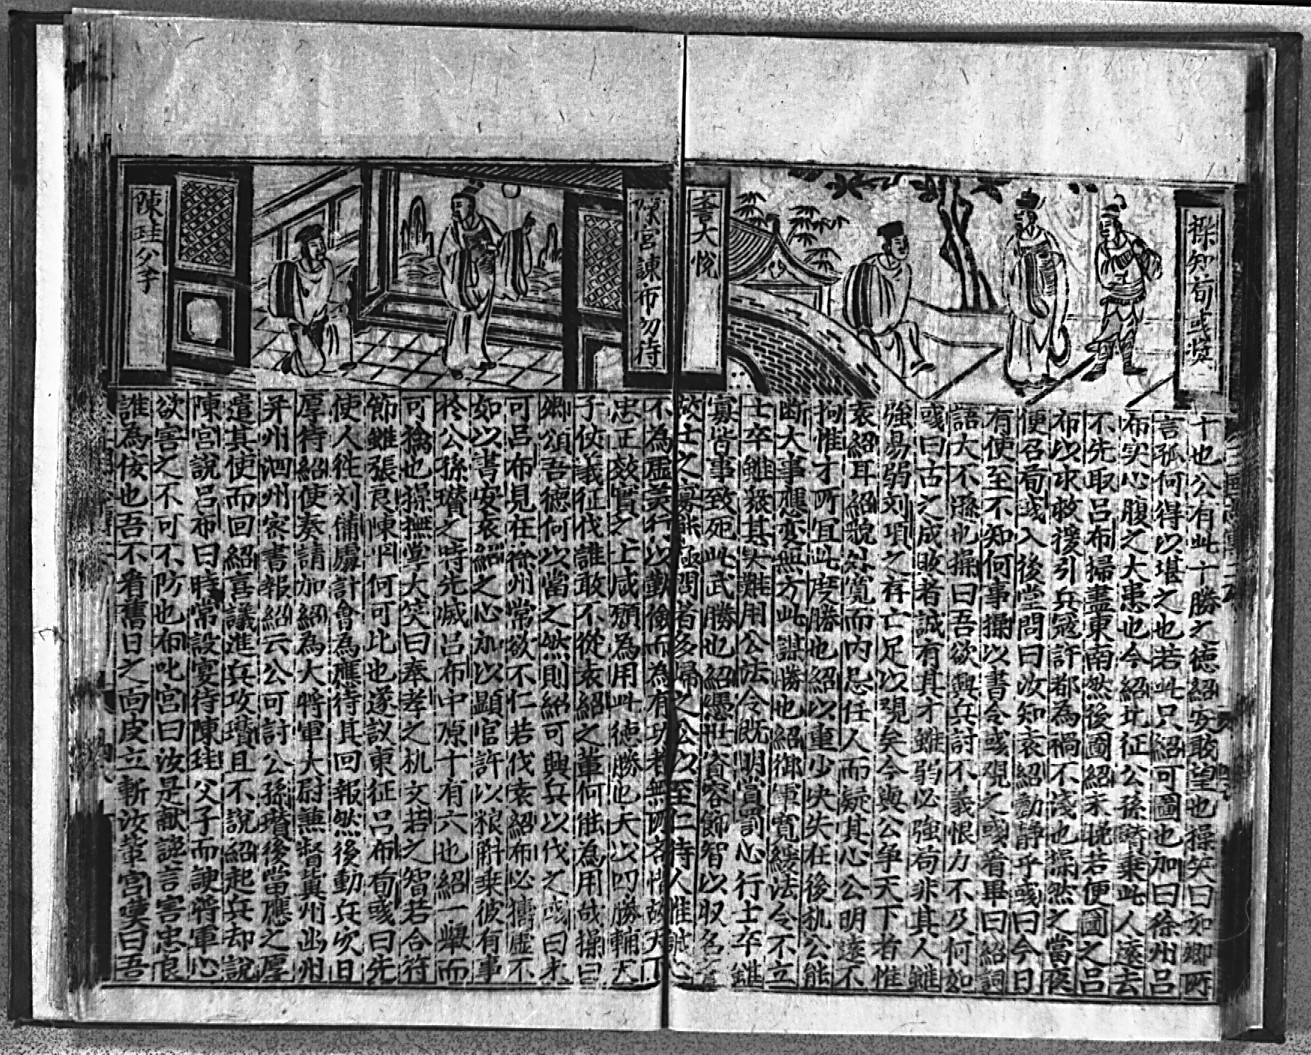 操知荀彧奨
荅大悅
十也公有此十勝之德紹安敢望也操笑曰如卿所
言孤何得以堪之也若此只紹可圖也加曰徐州吕
布実心腹之大患也今紹北征公孫瓚乘此人遠去
不先取吕布掃盡東南然後圖紹未晚若便圖之吕
布以求救援引兵冦許都為禍不淺也操然之當夜
便召荀彧入後堂問曰汝知袁紹動静乎彧曰今日
有使至不知何事操以書令彧覌之彧看畢曰紹詞
語大不遜也操曰吾欲興兵討不義恨力不及何如
彧曰古之成敗者誠有其才雖弱必強苟非其人雖
強易弱刘項之存亡足以覌矣今與公争天下者惟
袁紹耳紹貌外寬而内忌任人而疑其心公明達不
拘惟才所宜此度勝也紹以重少决失在後机公能
断大事應変無方此謀勝也紹御軍寬緩法令不立
士卒雖衆其実難用公法令既明賞罰必行士卒雖
寡皆事致死此武勝也紹憑世資容飾智以収名
故士之寡能極問者多歸之公以至仁待人推誠心
陳宮諫布勿待
陳珪父子
不為虛美行以勤儉而為有功者無所吝惜故天下
忠正效實之士咸愿為用此德勝也夫以四勝輔天
子仗義征伐誰敢不從袁紹之輩何能為用哉操曰
卿頌吾德何以當之然則紹可興兵以伐之彧曰未
可吕布見在徐州常欲不仁若伐袁紹布必擣虛不
如以書安袁紹之心加以顯官許以粮斛乘彼有事
於公孫瓚之時先滅吕布中原十有六也紹一舉而
可擒也操撫掌大笑曰奉孝之机文若之智若合符
節雖張良陳平何可比也遂議東征吕布荀彧曰先
使人徃刘備處計會為應待其回報然後動兵次日
厚待紹使奏請加紹為大將軍大尉兼督冀州幽州
并州泗州密書報紹云公可討公孫瓚後當應之厚
遣其使而回紹喜議進兵攻瓚且不說紹起兵却說
陳宮說吕布曰時常設宴待陳珪父子而諛將軍心
欲害之不可不防也布叱宮曰汝是献讒言害忠良
誰為佞也吾不看舊日之面皮立斬汝輩宮嘆曰吾